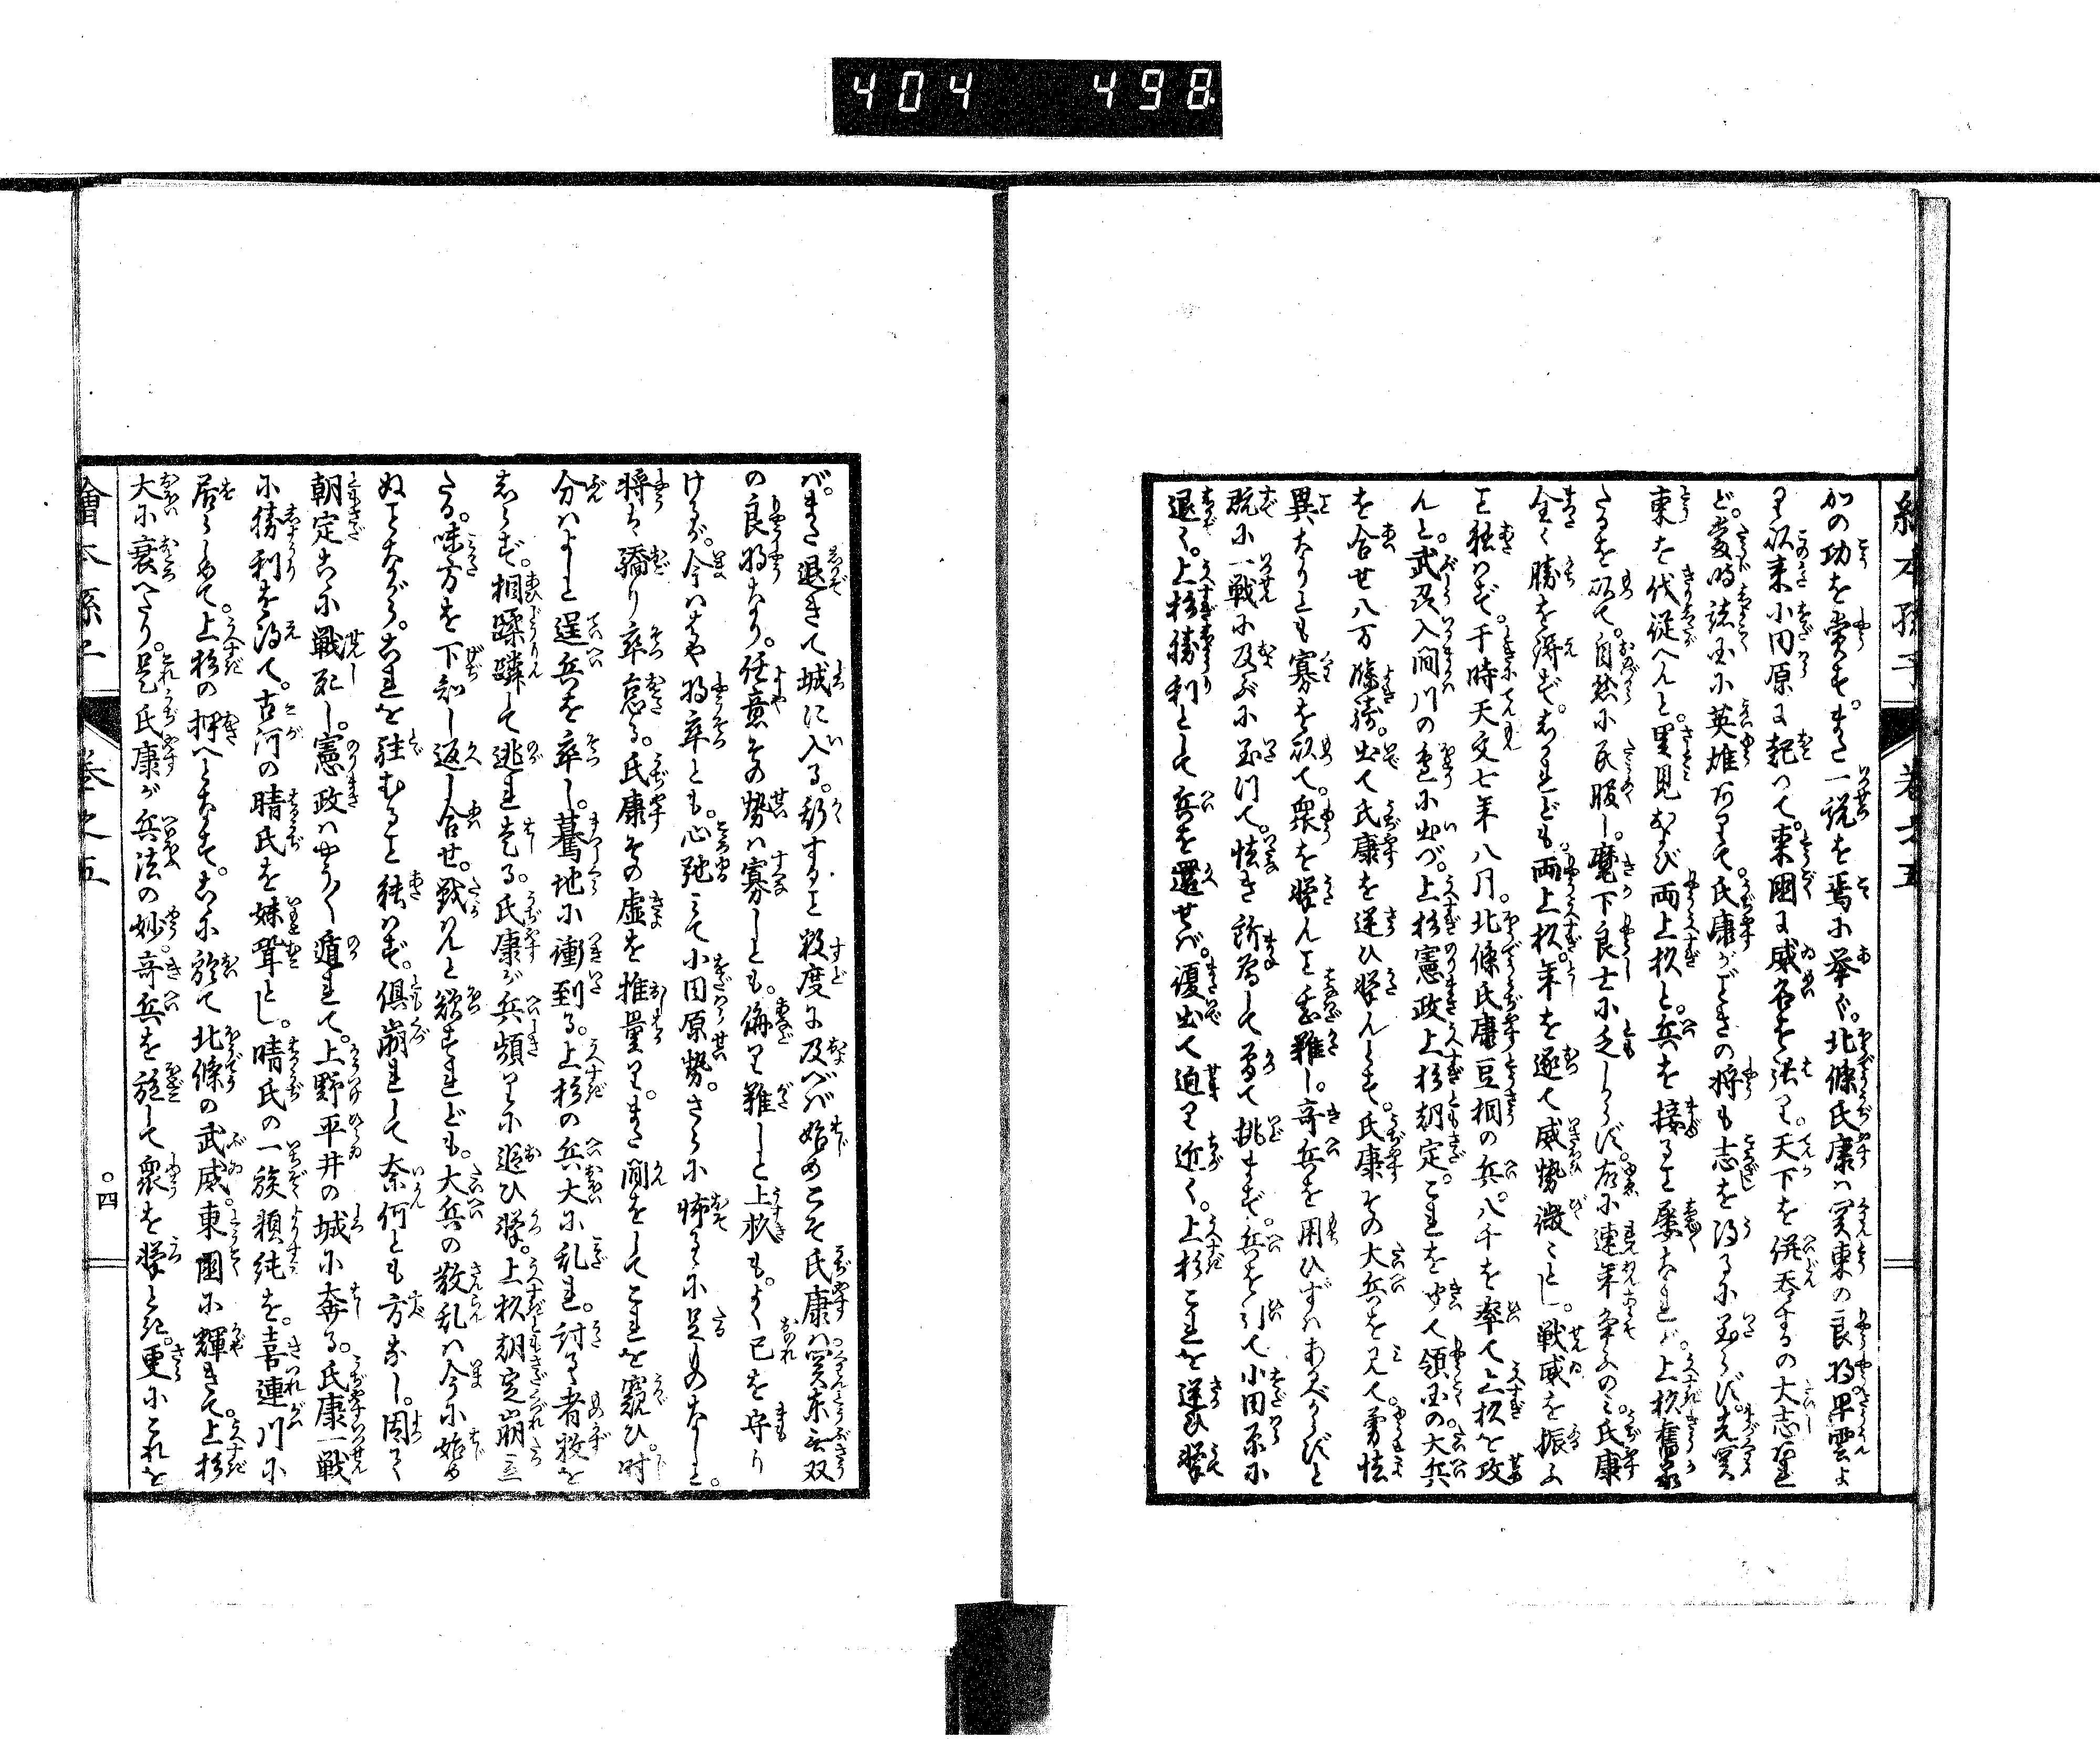 404 498
繪本孫子 卷之五
かの功を賞す。また一説を焉に挙ぐ。北條氏康ハ関東の良将早雲よ
り以来小田原に起つて。東國に威名を張り。天下を併呑するの大志あれ
ど。當時諸国に英雄ありて。氏康がごときの将も志を得るに至らず。先関
東を伐従へんと。里見および両上杦と。兵を接ること屡なれバ。上杦舊
たるを以て。自然に民服し。麾下良士に乏しからず。故に連年争ふのミ氏康
全く勝を得ず。しかれども。両上杦。年を逐て威勢微々とし。戦威を振ふ
こと能ハず。于時天文七年八月。北條氏康豆相の兵。八千を率て上杦を攻
んと。武州入間川の邊に出づ。上杉憲政上杉朝定。これを聞て領国の大兵
を合せ八万餘騎。出て氏康を逆ひ撃んとす。氏康その大兵を見て。勇怯
異なりとも寡を以て。衆を撃んこと甚難し。奇兵を用ひずハあるべからずと
既に一戦に及ぶに至つて。怯き為して敢て挑まず。兵を引て小田原に
退く。上杉勝利として兵を還せバ。復出て迫り近く。上杉これを逆ひ撃
バ。また退きて城に入る。斯すること数度に及べバ始めこそ氏康ハ関東無双
の良将なり。任意その勢ハ寡しとも。侮り難しと上杦も。よく己を守り
けるが。今ハはや将卒とも。心弛ミて小田原勢。さらに怖るゝに足ものなしと。
将は驕り卒怠る。氏康その虚を推量り。また間をしてこれを窺ひ。時
分ハよしと逞兵を卒し。驀地に衝到る。上杉の兵大に乱れ。討るゝ者数を
しらず。相蹂躪して逃れ走る。氏康が兵頻りに追ひ撃。上杦朝定崩立
たる。味方を下知し返し合せ。戦ハんと欲すれども。大兵の散乱ハ今に始め
ぬことながら。これを駐むること能ハず。倶崩れして奈何とも方なし。固て
朝定こゝに戦死し。憲政ハやう〱遁れて。上野平井の城に奔る。氏康一戦
に勝利を得て。古河の晴氏を妹聟とし。晴氏の一族頼純を。喜連川に
居らしめて。上杉の押へとなす。こゝに於て北條の武威。東國に輝きて。上杉
大に衰へたり。是氏康が兵法の妙。奇兵を施して衆を撃とき。更にこれを
繪本孫子 卷之五 ○四